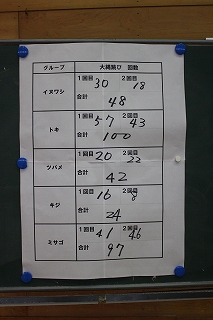 グループ 大縄跳び 回数
イヌワシ 1回目 30 2回目 18
合計 48
トキ 1回目 57 2回目 43
合計 100
ツバメ 1回目 20 2回目 22
合計 42
キジ 1回目 16 2回目 8
合計 24
ミサゴ 1回目 41 2回目 46
合計 97